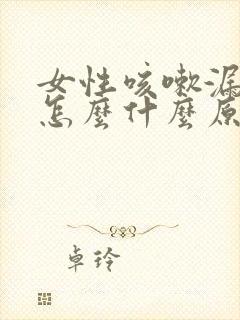 女性咳嗽漏
怎麼什麼原
卓玲